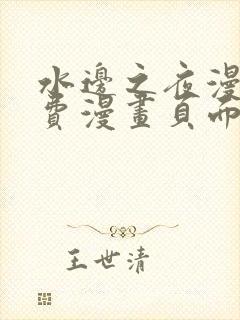 水邊之夜漫
費漫畫頁面
王世清